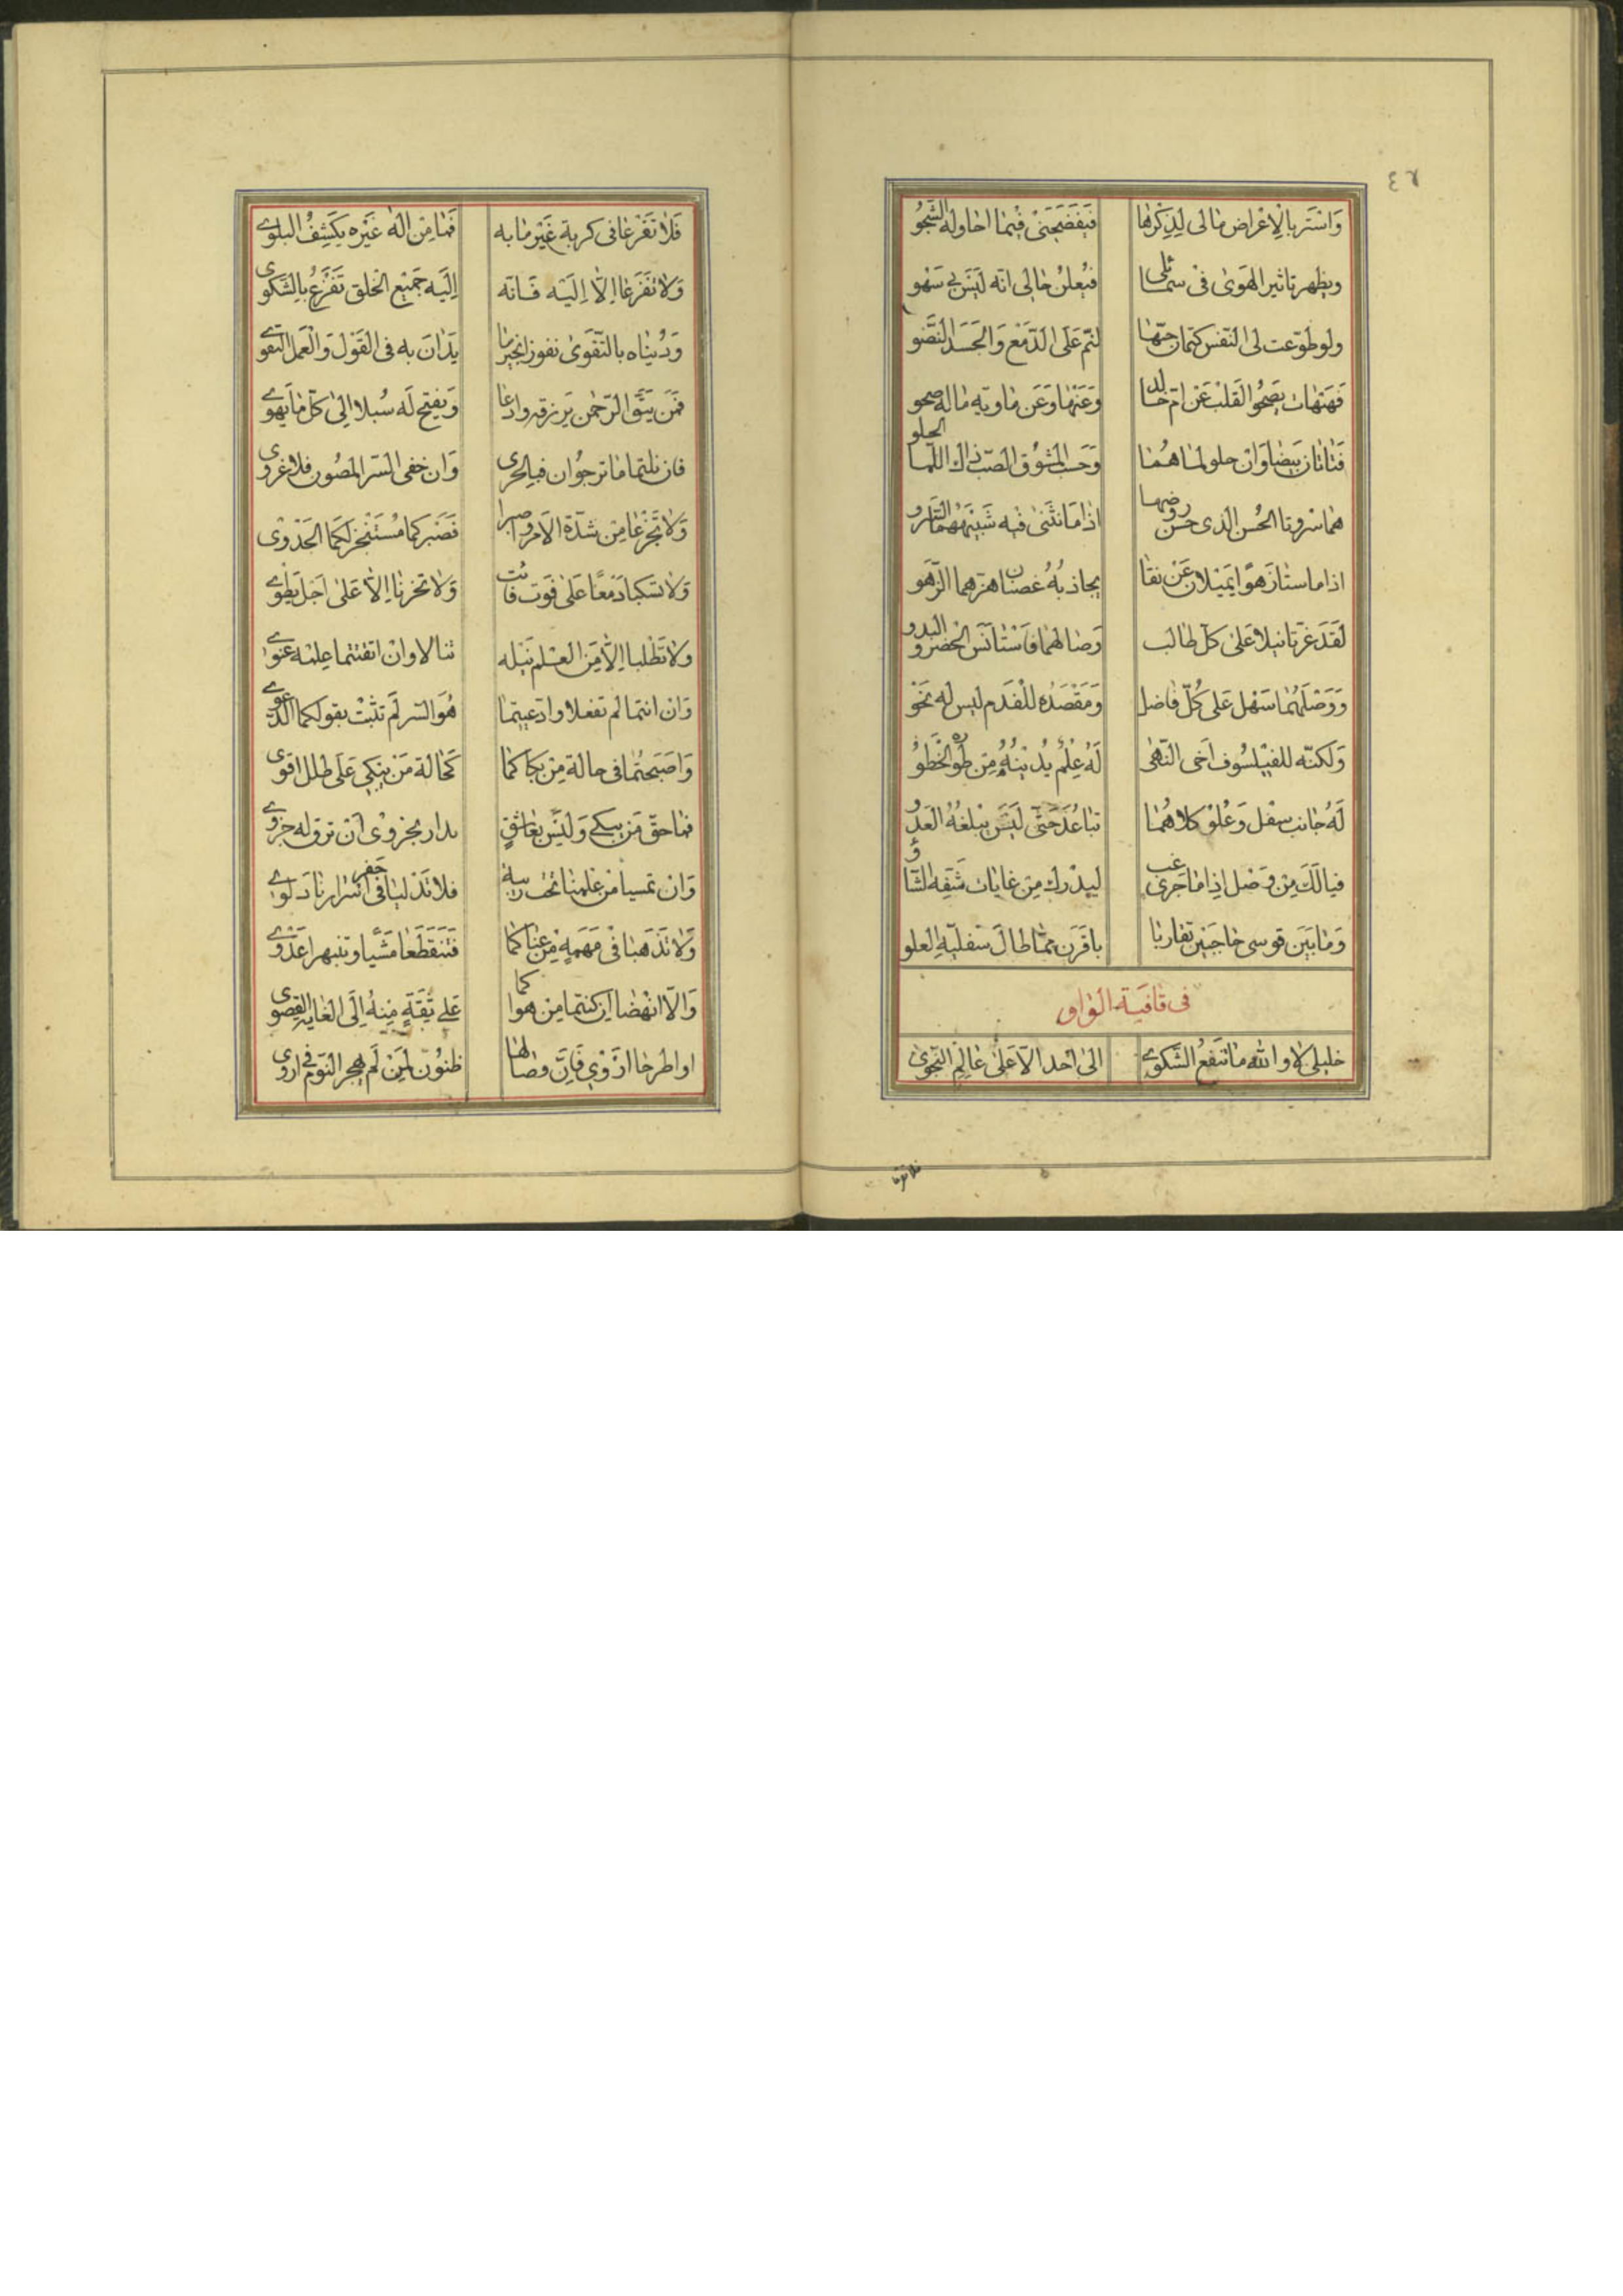 ٤٧
وَاسْتَر بالِاعْراض مالى لِذِكْرها فَيَفْضَحَنى فيما احاوله الشَّجوُ
ويظهر تاثير الهَوىٰ فى شمائلى فيُعلنُ حالى انه لَيْسَ بى سَهْو
ولو طوّعت لى النّفس كتمان حبّها لنمّ عَلَى الدّمْع وَالجَسَد النّضو
فَهَيْهات يَصحُو القلب عَن امّ خالد وَعَنْها وعَن ماويه ماله صحو
فتاتان بَيضاوان حلو لماهُما وَحَسْب المشُوق الصّب ذاك اللّما الحلو
هما سروتا الحُسن الذى حسن روضهما اذا ما انثَنى فيه شَبيَههُما السَّرو
اذا ما ستازَهوًا يَميلان عَنْ نقا يجاذبُهُ غصنان هزهما الزّهو
لَقَد عَزّتا نيلا عَلىٰ كلّ طالب وَصالهما فَاسْتَأنَس الحْضر والبدو
وَوَصْلَهُما سَهْل عَلى كُلّ فاضل وَمَقْصَدُه للْفَدم ليس له نَحْوُ
وَلكنّه للفيْلسُوف اَخى النّهىٰ لَهُ عِلْمٌ يُدْنيْهُ مِن طَوْره الخَطوُ
لَهُ جانب سفْل وَعُلوْ كلاهُما تباعُدَ حَتّى لَيْسَ يبْلغهُ العَدْوُ
فيالَكَ مِن وَصْل اِذا ما جرى غب ليدْرك مِن غايات شَقِّه الشّأوُ
وَما بَيَن قوسى حاجَبَيْن تقاربا باقرَن ممّا طالَ سفليّهِ العلو
فى قافيَة الوٰاو
خليلىّ لا والله ما تنفَعُ الشَّكوى الىٰ اَحد الّا عَلىٰ عٰالِم النّجوىٰ
فلا تفزعا
فَلا تَفْزعا فى كربة غَيْر ما به فَما مِن اله غَيْره يَكشِفُ البلوى
وَلا تفزَعا اِلّا اِليَه فَانّه اِلَيه جَميْع الخلق تَفْزَعُ بِالشَكوى
وَدُيناه بالتَّقوىٰ نفوز بخير ما يَدٰان به فى القَوْل وَالْعَمل التقوى
فمَن يتَّق الرّحمٰن يَرزقه وادعا وَيفتح لَه سُبلا اِلىٰ كلّ ما يَهوى
فان نلتما ما ترجوٰان فبالحرى وَان خفى السّر المصُون فلا غروى
وَلا تَجْزعا مِن شدّة الاَمر واصبرا فَصَبْركما مُسْتَنْجز لكَما الجَدْوى
وَلا تسكبا دَمعًا عَلىٰ فَوت فائت وَلا تحزنا اِلّا عَلىٰ اَجَل يطوى
ولا تطْلبا اِلّا مَن العلم نَيْله تنالا وانْ اتقنتما علمه عنوى
وَان انتما لم تفعلا وادّعيتما هُوَ السّر لَم تثبْت بقولكما الدّعوى
وَاصْبَحتُما فى حالة مِن بكاكما كحالة مَن يَبْكى عَلى طلل اقوى
فما حقّ مَن يبكى وَليَس بعاشقٍ بدار بحزوى اَن ترق له حزوى
وَان تمسيا من علمنا تحْت ريبة فلا تدليا فى جَفر اسْرارنا دلوى
وَلا تَذهَبا فى مَهْمهٍ مِن عناكما فتنقطعا مَشْيا وتنبهرا عَدْوى
وَالّا انهضا ان كنتما مِن هواكما عَلى ثِقَةٍ مِنهُ اِلَى الغايه القصوى
او اطرحا ازوى فَاِنّ وصالها ظنون لمن لَم يهجر النّوم فى اروى